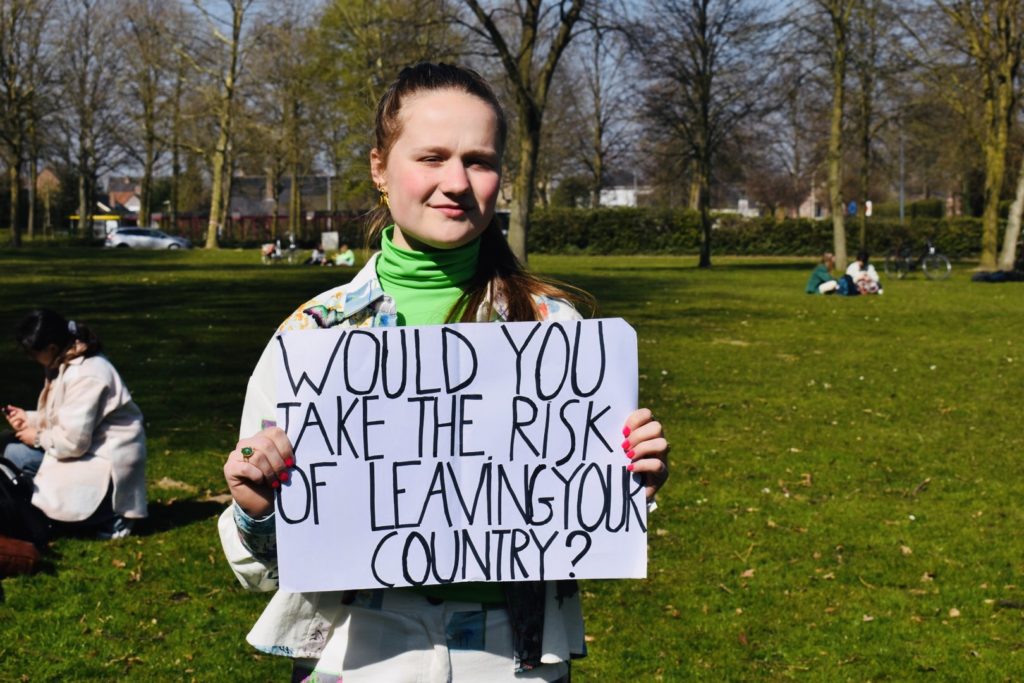 WOULD YOU
TAKE THE RISK
OF LEAVING YOUR
COUNTRY?